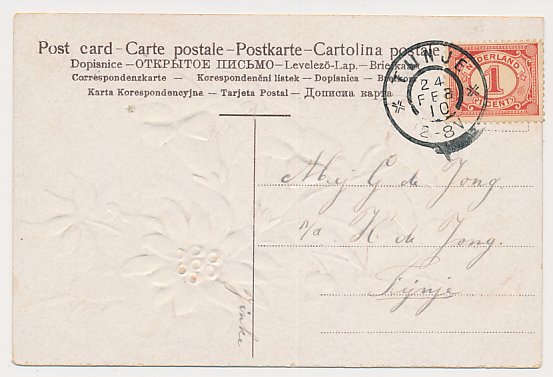 Post card - Carte postale - Postkarte - Cartolina postale
Dopisnice - ОТКРЫТОЕ ПИСЬМО - Levelező-Lap. - Briefkaart
Correspondenzkarte - Korespondenční listek - Dopisnica - Brefkort
Karta Korespondencyjne - Tarjeta Postal - Дописна карта
TIJNJE
24
FEB
10
2-8V
NEDERLAND
1
CENT
Mej G de Jong
p/a K de Jong.
Tijnje
Jinke